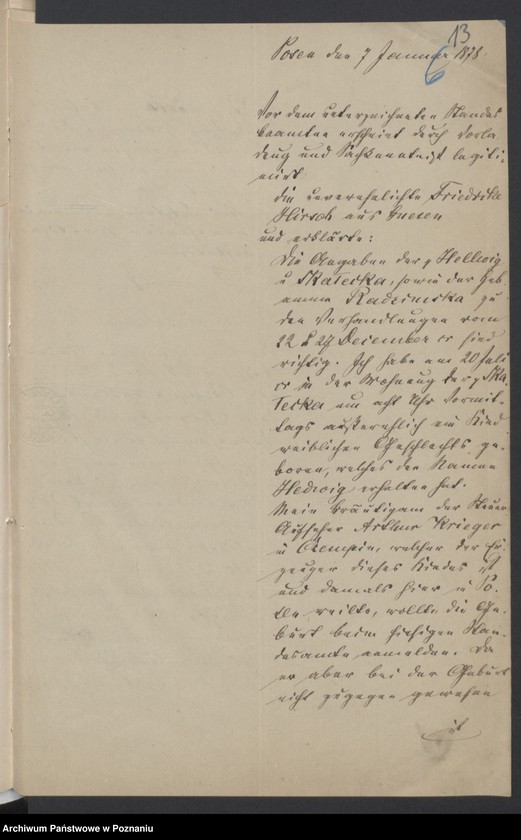 13
6
Posen den 7 Januar 1878.
Vor dem unterzeichneten Standes
beamten erscheint durch Vorla
dung und Sachkenntniß legiti-
mirt
die unverehelichte Friedrike
Hirsch aus Gnesen
und erklärte:
Die Angaben der Hellwig
u Skatecka, sowie der Heb
amme Radzimska zu
den Verhandlungen vom
22 & 27 December cr sind
richtig. Ich habe am 20 Juli
cr in der Wohnung der Ska
tecka um acht Uhr Vormit-
tags außerehlich ein Kind
weiblichen Geschlechts ge-
boren, welches den Namen
Hedwig erhalten hat.
Mein Bräutigam der Steuer
Aufseher Arthur Krieger
in Czempin, welcher der Er-
zeuger dieses Kindes ist
und damals hier in
weilte, wollte die Ge-
burt beim hiesigen Stan-
desamte anmelden. Da
er aber bei der Geburt
nicht zugegen gewesen
ist
Archiwum Państwowe w Poznaniu